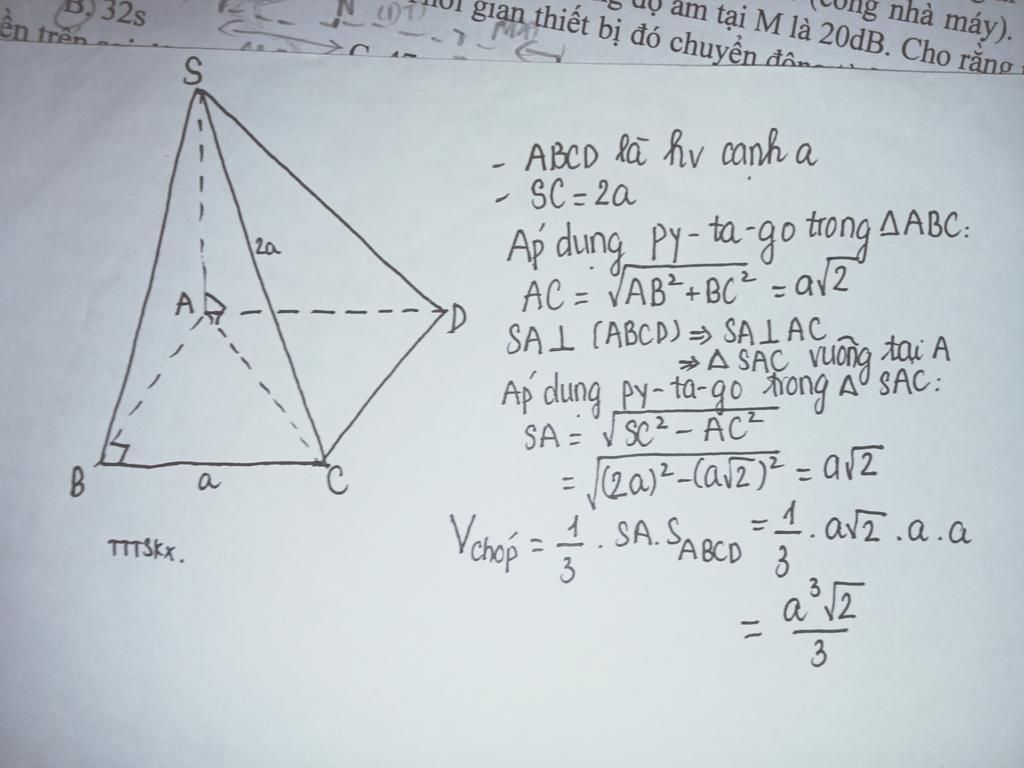 B) 32s
N
(công nhà máy).
gian thiết bị đó chuyển
độ âm tại M là 20dB. Cho rằng
S
2a
A
D
B
a
C
TTTSKX.
- ABCD là hv cạnh a
- SC = 2a
Áp dụng py-ta-go trong ΔABC:
AC = √(AB² + BC²) = a√2
SA ⊥ (ABCD) ⇒ SA ⊥ AC
⇒ Δ SAC vuông tại A
Áp dụng py-ta-go trong Δ SAC:
SA = √(SC² - AC²)
= √((2a)² - (a√2)²) = a√2
Vchóp = 1/3 . SA. S ABCD = 1/3 . a√2 . a . a
= a³√2/3